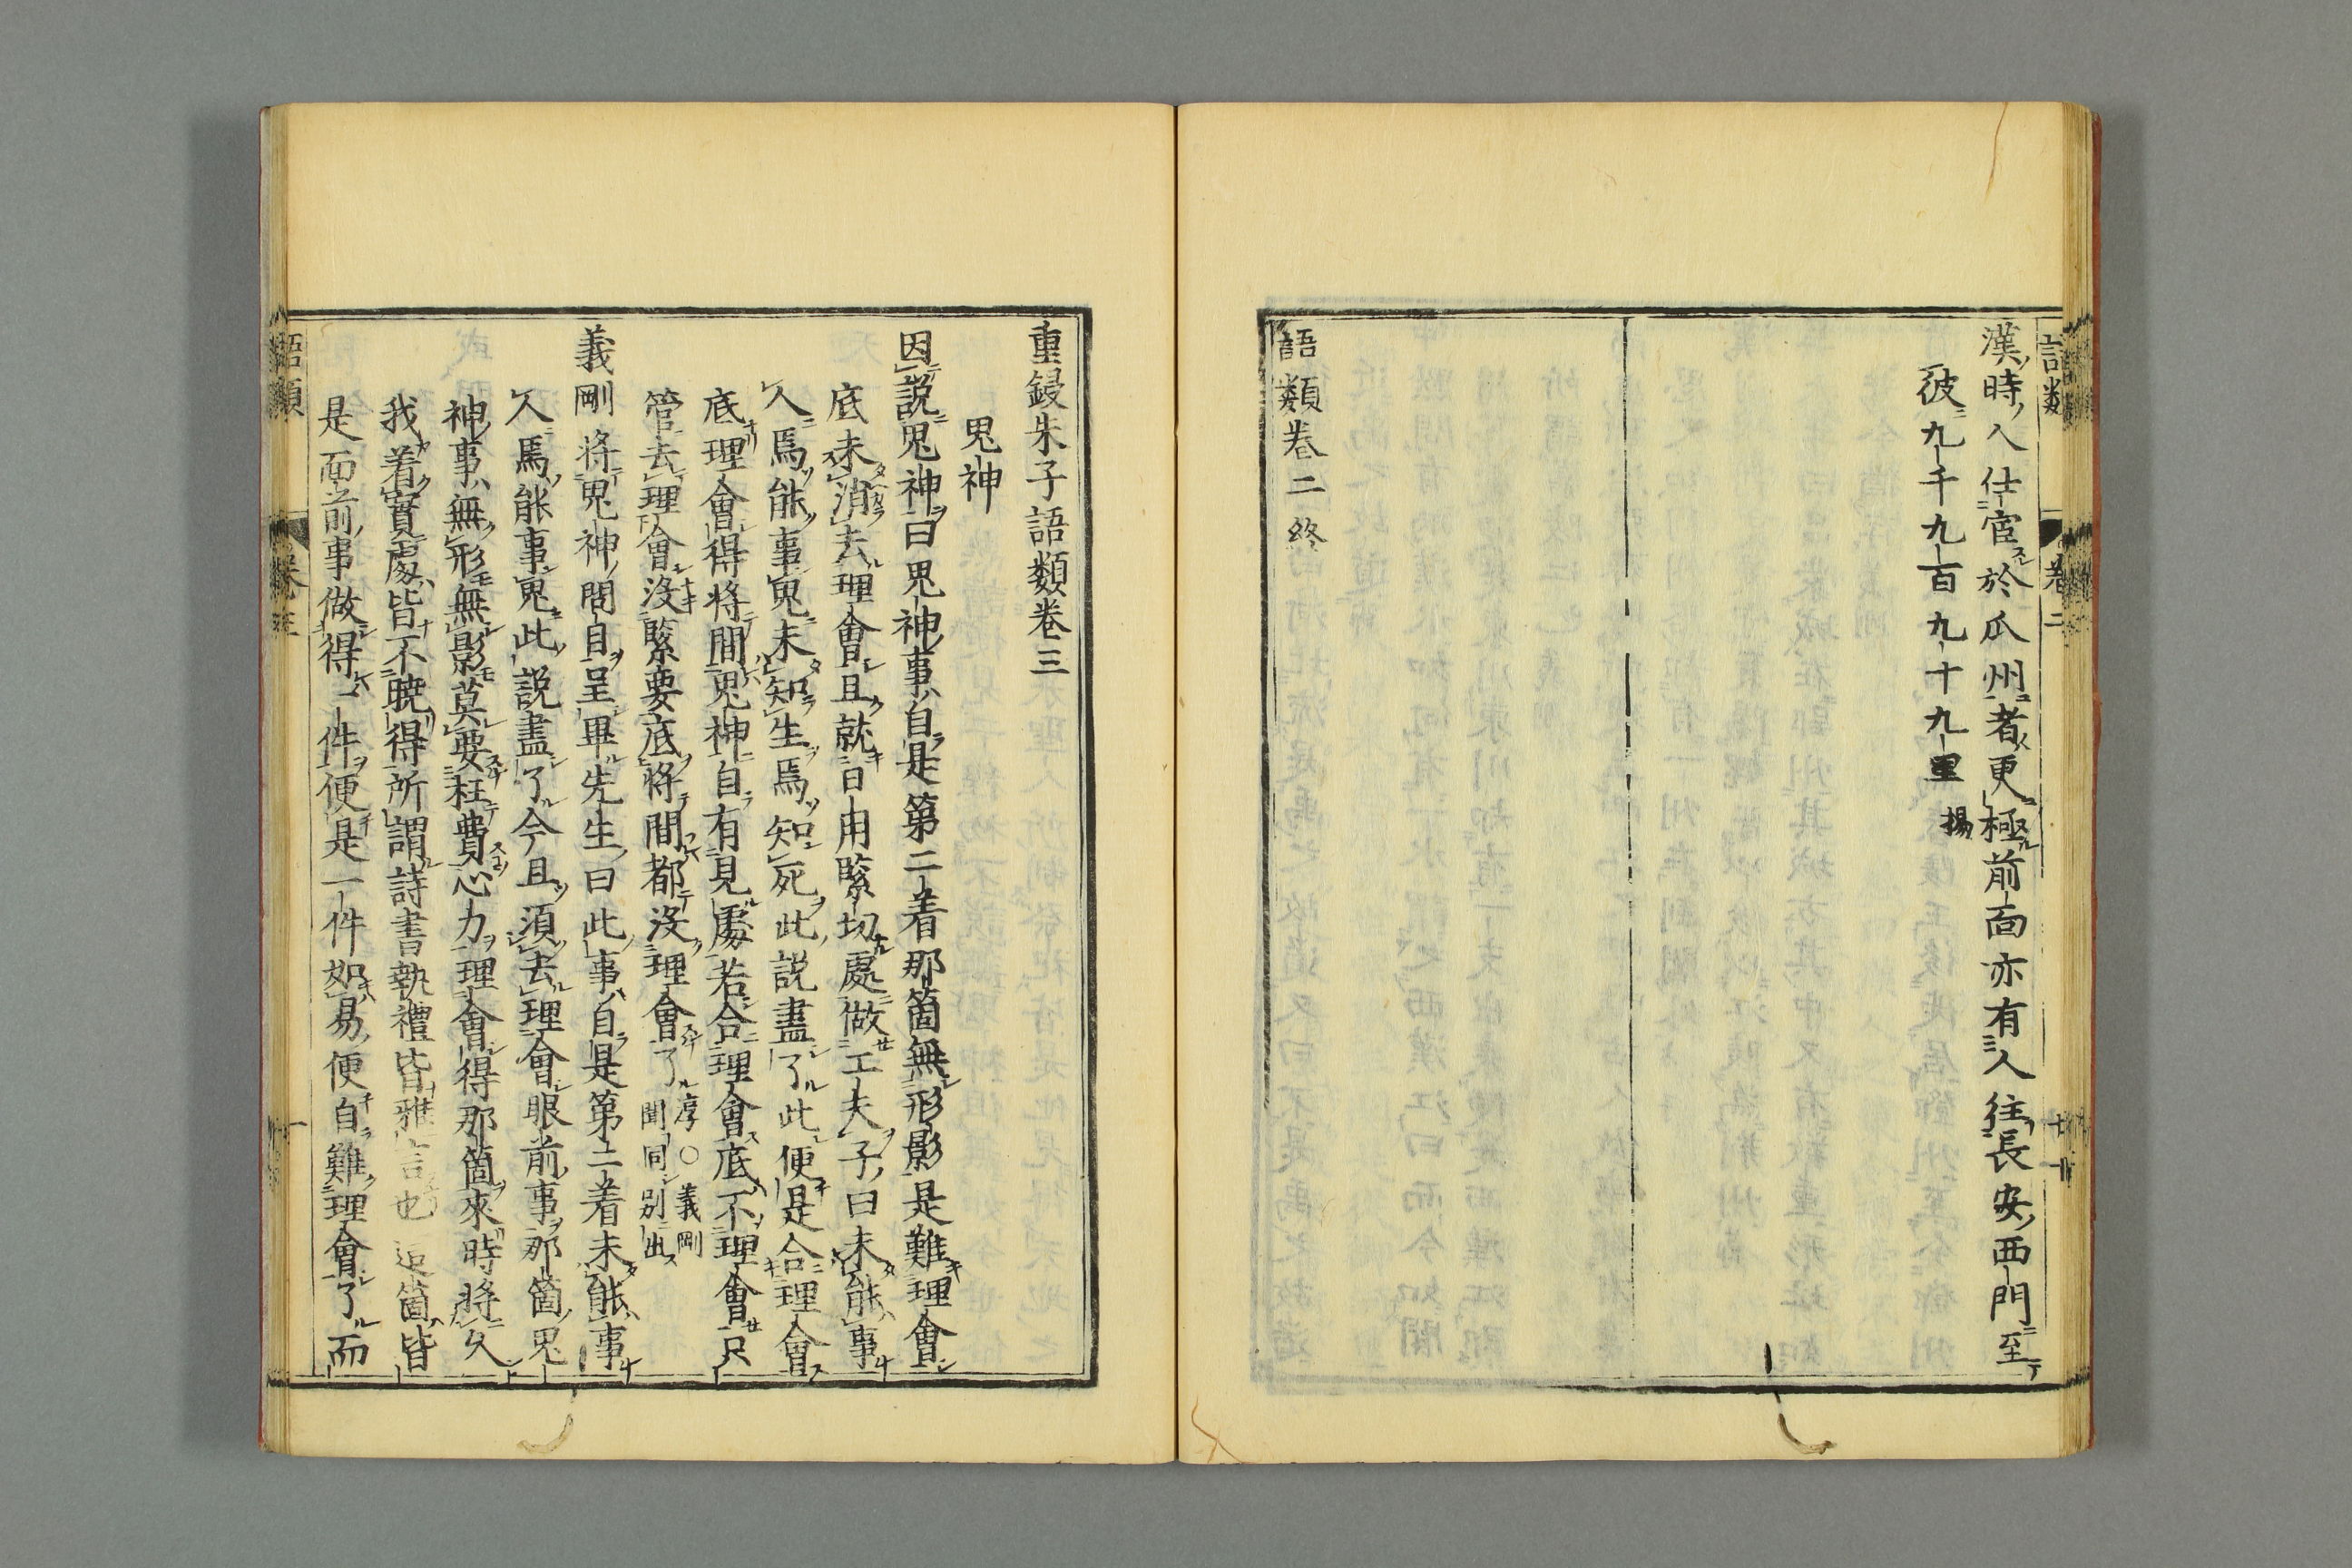 漢時入仕宦於瓜州者更極前面亦有人往長安西門至
彼九千九百九十九里 揚
語類卷二終
重鋟朱子語類卷三
鬼神
因説鬼神曰鬼神事自是第二着那箇無形影是難理會
底未消去理會且就日用緊切處做工夫子曰未能事
人焉能事鬼未知生焉知死此説盡了此便是合理會
底理會得將間鬼神自有見處若合理會底不理會只
管去理會没緊要底將間都没理會了 淳○義剛
聞同別出
義剛將鬼神問目呈畢先生曰此事自是第二着未能事
人焉能事鬼此説盡了今且須去理會眼前事那箇鬼
神事無形無影莫要枉費心力理會得那箇來時將久
我着實處皆不曉得所謂詩書執禮皆雅言也這箇皆
是面前事做得一件便是一件如易便自難理會了而
語類 卷三 一